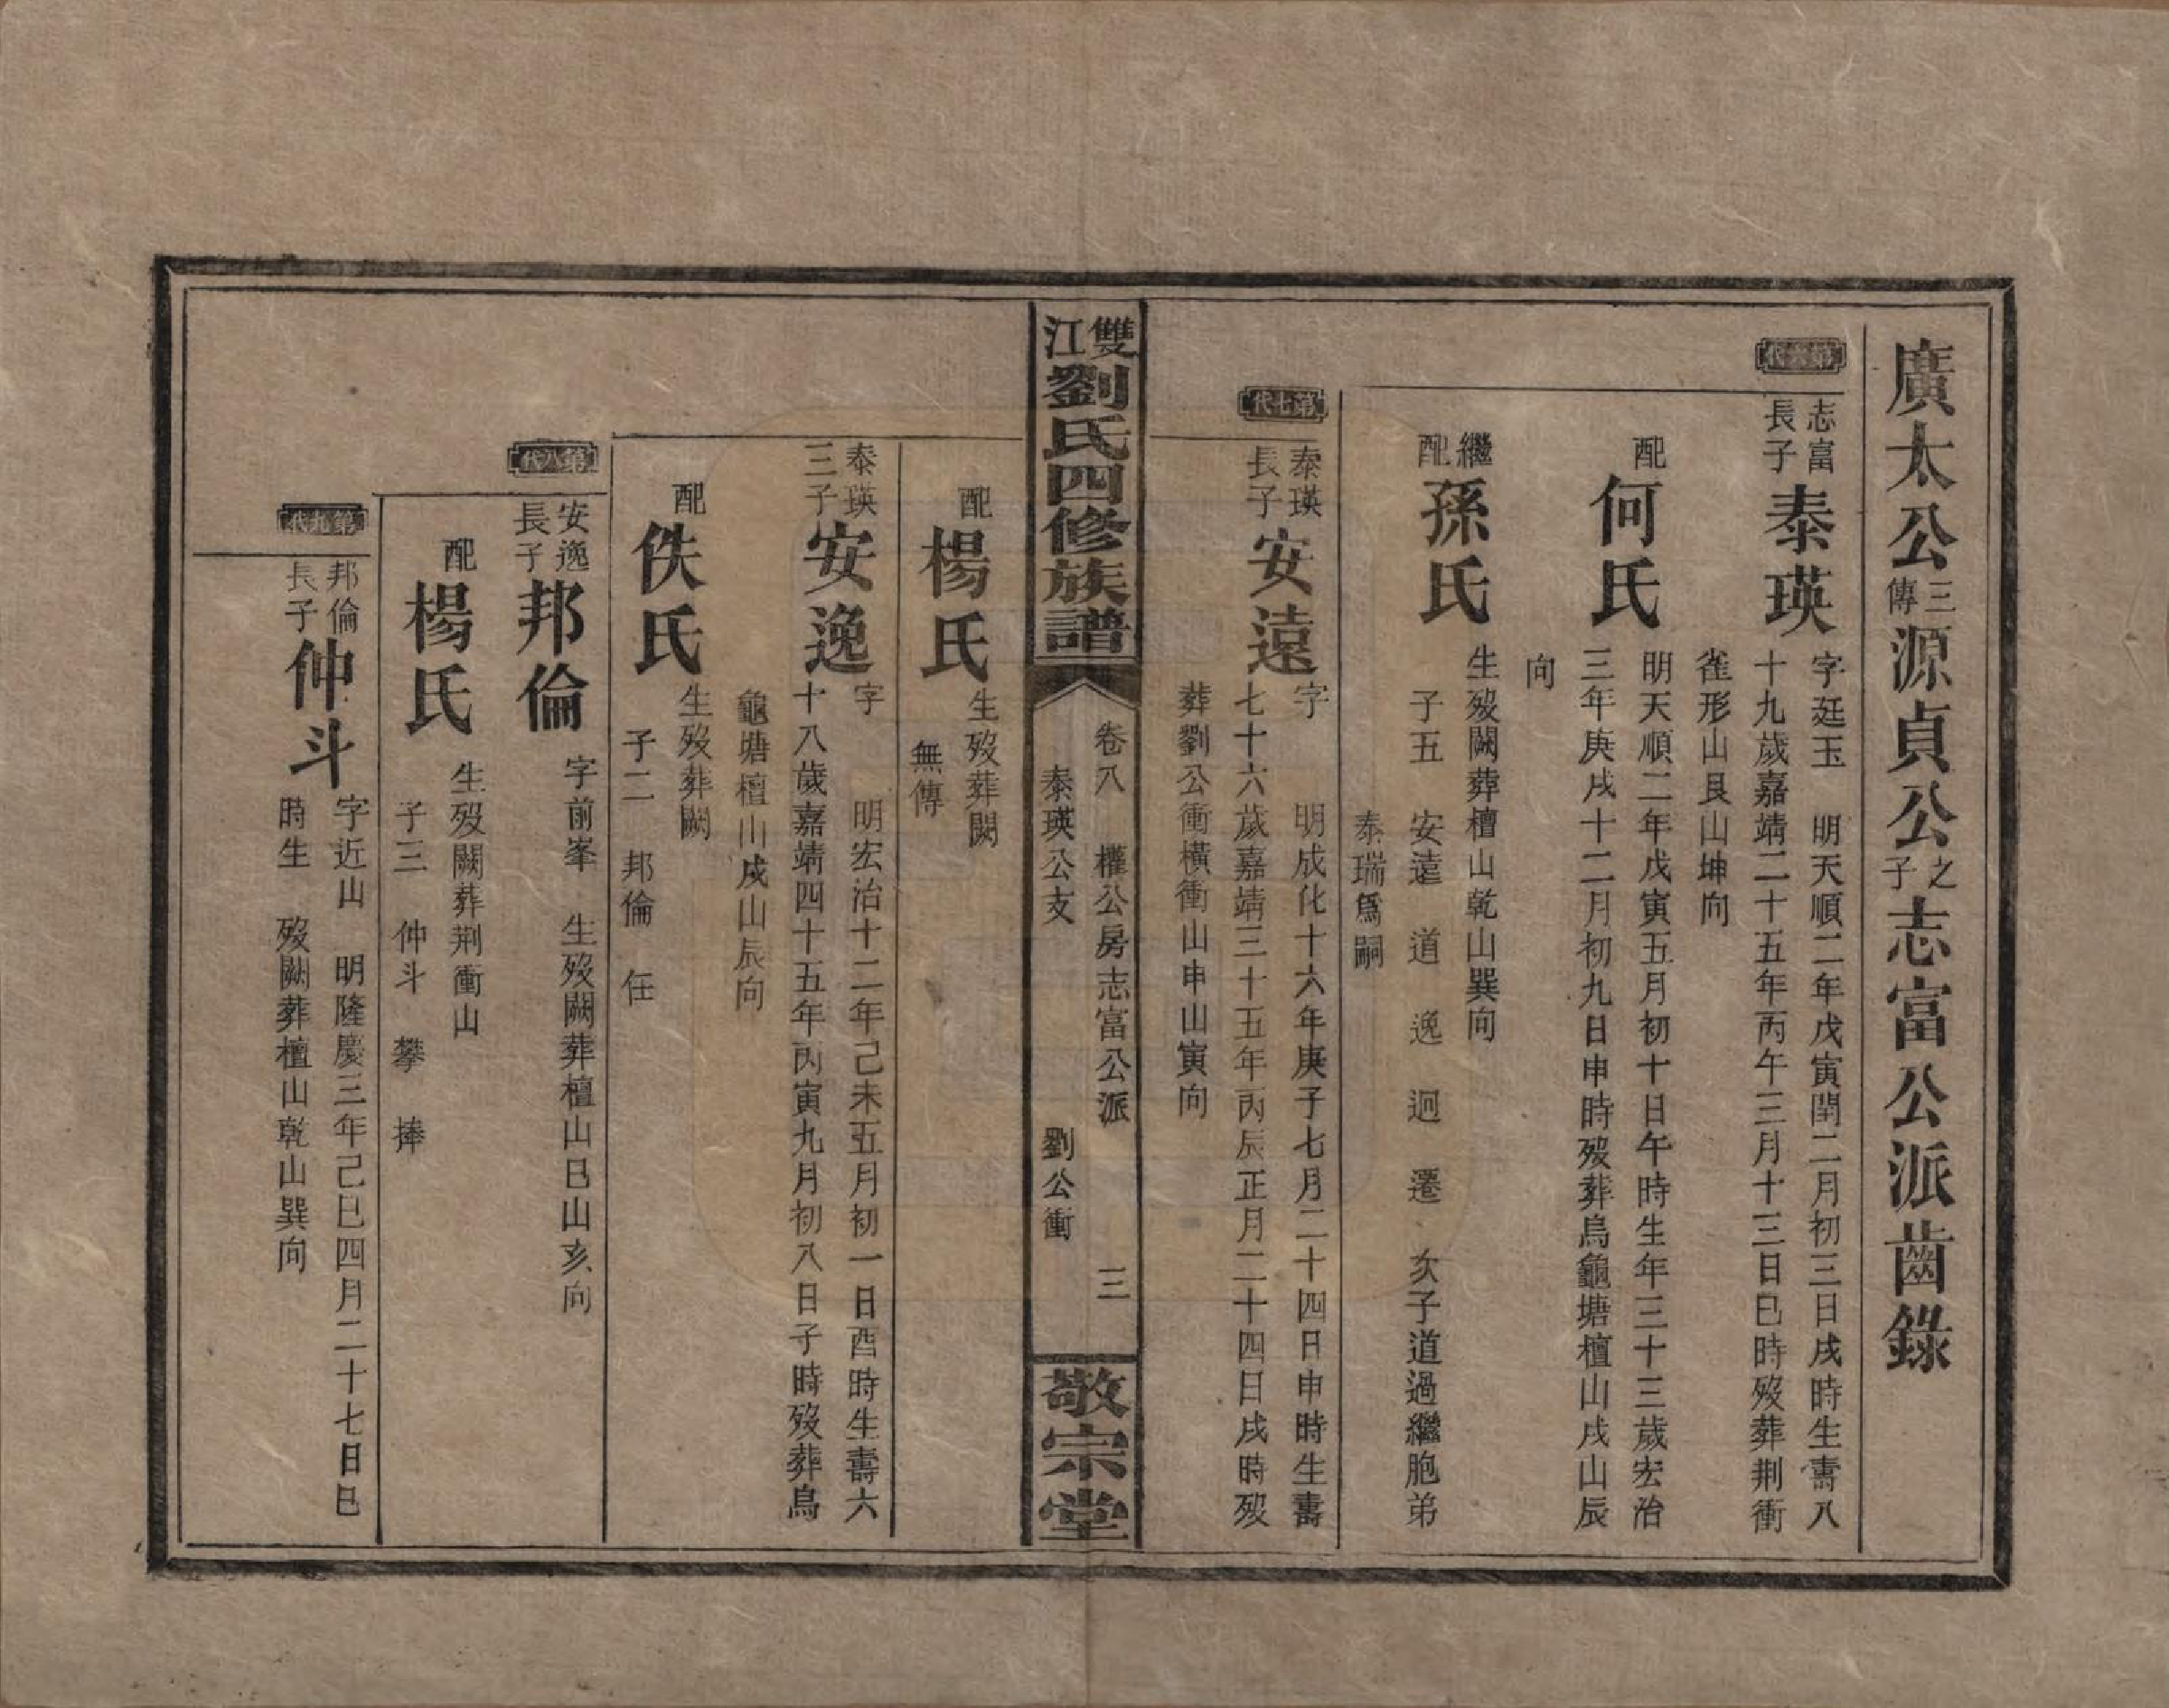 廣太公三傳源貞公之子志富公派齒錄
第六代
志富長子泰瑛
字廷玉　明天順二年戊寅閏二月初三日戌時生壽八
十九歲嘉靖二十五年丙午三月十三日巳時歿葬荆衝
雀形山艮山坤向
配何氏
明天順二年戊寅五月初十日午時生年三十三歲宏治
三年庚戌十二月初九日申時歿葬烏龜塘檀山戌山辰
向
繼配孫氏
生歿闕葬檀山乾山巽向
子五　安遠　道　逸　迥　遷　次子道過繼胞弟
泰瑞爲嗣
第七代
泰瑛長子安遠
字　　明成化十六年庚子七月二十四日申時生壽
七十六歲嘉靖三十五年丙辰正月二十四日戌時歿
葬劉公衝橫衝山申山寅向
雙江劉氏四修族譜
卷八　權公房志富公派　三
泰瑛公支　劉公衝
敬宗堂
配楊氏
生歿葬闕
無傳
泰瑛三子安逸
字　　明宏治十二年己未五月初一日酉時生壽六
十八歲嘉靖四十五年丙寅九月初八日子時歿葬烏
龜塘檀山戌山辰向
配佚氏
生歿葬闕
子二　邦倫　任
第八代
安逸長子邦倫
字前峯　生歿闕葬檀山巳山亥向
配楊氏
生歿闕葬荆衝山
子三　仲斗　攀　捧
第九代
邦倫長子仲斗
字近山　明隆慶三年己巳四月二十七日巳
時生　歿闕葬檀山乾山巽向